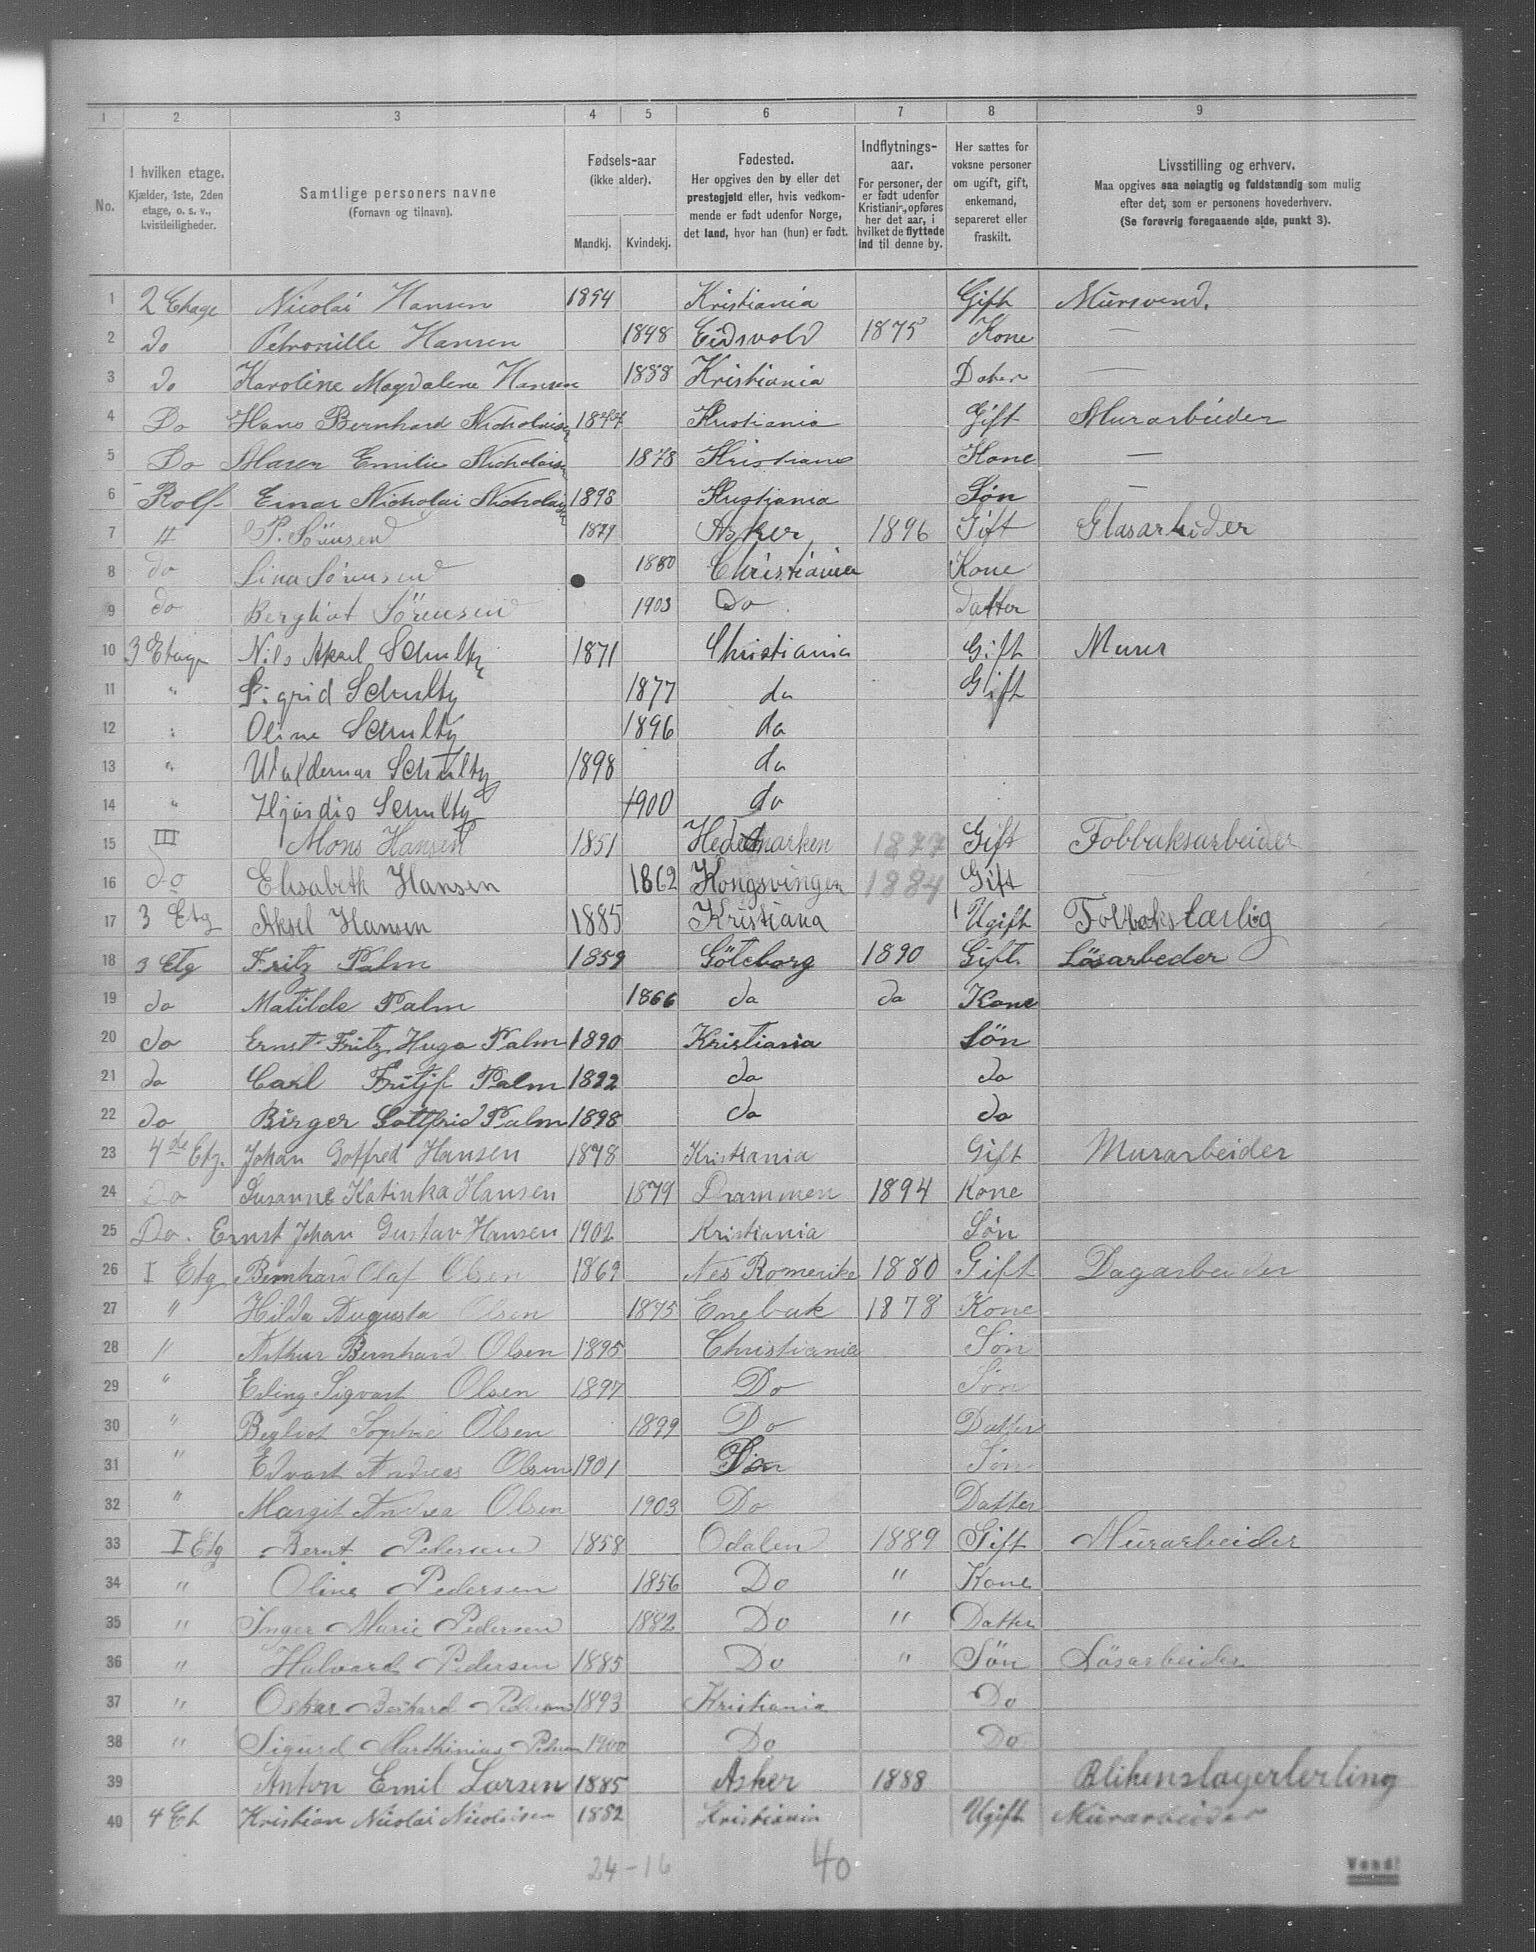 1 2 3 4 5 6 7 8 9
No.
I hvilken etage.
Kjælder, 1ste, 2den
etage, o. s. v.,
kvistleiligheder.
Samtlige personers navne
(Fornavn og tilnavn).
Fødsels-aar
(ikke alder).
Mandkj. Kvindekj.
Fødested.
Her opgives den by eller det
prestegjeld eller, hvis vedkom-
mende er født udenfor Norge,
det land, hvor han (hun) er født.
Indflytnings-
aar.
For personer, der
er født udenfor
Kristiania, opføres
her det aar, i
hvilket de flyttede
ind til denne by.
Her sættes for
voksne personer
om ugift, gift,
enkemand,
separeret eller
fraskilt.
Livsstilling og erhverv.
Maa opgives saa nøiagtig og fuldstændig som mulig
efter det, som er personens hovederhverv.
(Se forøvrig foregaaende side, punkt 3).
1 2 Etage Nicolai Hansen 1854 Kristiania Gift Mursvend.
2 do Petronille Hansen 1848 Eidsvold 1875 Kone —
3 do Karoline Magdalene Hansen 1888 Kristiania Dater —
4 Do Hans Bernhard Nicholaisen Kristiania Gift Murarbeider
5 Do Maren Emilie Nicholaisen 1878 Kristiania Kone —
6 Rolf Einar Nicholai Nicholaisen 1898 Kristiania Søn —
7 II P. Sörensen 1871 Asker 1896 Gift Glasarbeider
8 do Lina Sörensen 1880 Christiania Kone
9 do Bergliot Sörensen 1903 Do datter
10 3 Etage Nils Aksel Schultz 1871 Christiania Gift Murer
11 " Sigrid Schultz 1877 do Gift
12 " Oline Schultz 1896 do
13 " Waldemar Schultz 1898 do
14 " Hjørdis Schultz 1900 do
15 III Mons Hansen 1851 Hedemarken 1877 Gift Tobbaksarbeider
16 do Elisabeth Hansen 1862 Kongsvinger 1884 Gift
17 3 Etg Aksel Hansen 1885 Kristiana Ugift Tobbakslærlig
18 3 Etg Fritz Palm 1859 Göteborg 1890 Gift Lösarbeder
19 do Matilde Palm 1866 do do Kone
20 do Ernst Fritz Hugo Palm 1890 Kristiania Sön
21 do Carl Fritjf Palm 1892 do do
22 do Birger Gottfrid Palm 1898 do do
23 4de Etg. Johan Gotfred Hansen 1878 Kristiania Gift Murarbeider
24 Do Susanne Katinka Hansen 1879 Drammen 1894 Kone
25 Do. Ernst Johan Gustav Hansen 1902 Kristiania Søn
26 I Etg Bernhard Olaf Olsen 1869 Nes Romerike 1880 Gift Dagarbeider
27 " Hilda Augusta Olsen 1875 Enebak 1878 Kone
28 " Arthur Bernhard Olsen 1895 Christiania Søn
29 " Erling Sigvart Olsen 1897 Do Søn
30 " Bergliot Sophie Olsen 1899 Do Datter
31 " Edvart Andreas Olsen 1901 Do Søn
32 " Margit Andrea Olsen 1903 Do Datter
33 I Etg Bernt Pedersen 1858 Odalen 1889 Gift Murarbeider
34 " Oline Pedersen 1856 Do " Kone
35 " Inger Marie Pedersen 1882 Do " Datter
36 " Halvard Pedersen 1885 Do " Søn Løsarbeider
37 " Oskar Berhard Pedersen 1893 Kristiania Do
38 " Sigurd Marthinius Pedersen 1900 Do Do
39 Anton Emil Larsen 1885 Asker 1888 Blikenslagerlerling
40 4 Et Kristian Nicolai Nicolaisen 1882 Kristiania Ugift Murarbeider
24-16 40
Vend!